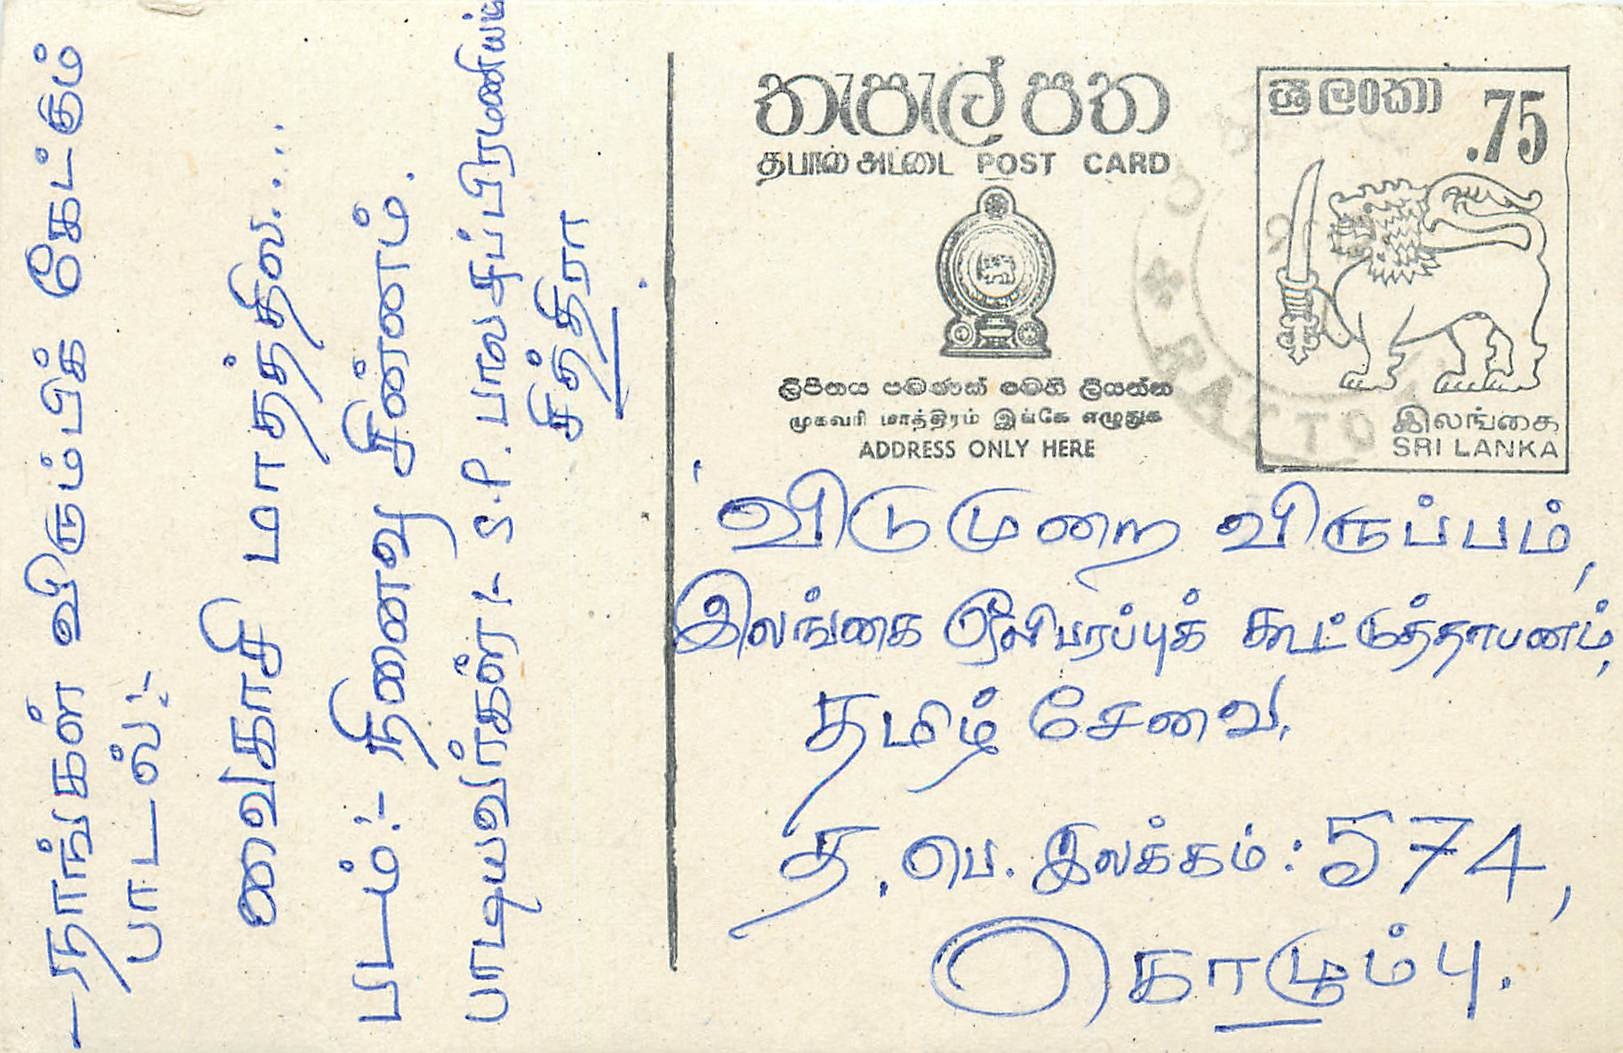 நாங்கள் விரும்பிக் கேட்கும்
பாடல்:-
வைகாசி மாதத்தில....
படம்:- நினைவு சின்னம்.
பாடியவர்கள்:- S.P. பாலசுப்பிரமணியம்
சித்திரா
තැපැල් පත
தபால் அட்டை POST CARD
ශ්‍රී ලංකා .75
ලිපිනය පමණක් මෙහි ලියන්න
முகவரி மாத்திரம் இங்கே எழுதுக
ADDRESS ONLY HERE
இலங்கை
SRI LANKA
விடுமுறை விருப்பம்,
இலங்கை ஒலிபரப்புக் கூட்டுத்தாபனம்,
தமிழ் சேவை.
த. பெ. இலக்கம்: 574,
கொடும்பு.